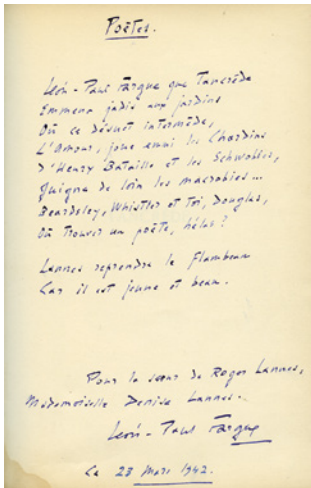 Poëtes.
Léon-Paul Fargue que Tancrède
Emmena jadis aux jardins
Où ce désuet intermède,
L'Amour, joue emmi les Chardins
D'Henry Bataille et les Schwobies,
Guigna de loin les macrobies...
Beardsley, Whistler et Toi, Douglas,
Où trouver un poëte, hélas ?
Lannes reprendra le flambeau
Car il est jeune et beau.
Pour la sœur de Roger Lannes,
Mademoiselle Denise Lannes.
Léon-Paul Fargue
Ce 23 Mars 1942.